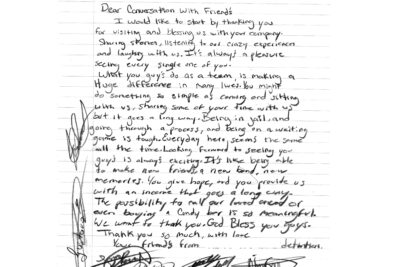 Dear Conversation With Friends
I would like to start by thanking you
for visiting and blessing us with your company.
Sharing stories, listening to our crazy experiences
and laughing with us. It's always a pleasure
seeing every single one of you.
What you guy's do as a team, is making a
Huge difference in many lives. You might
do something so simple as coming and sitting
with us, sharing some of your time with us
but it goes a long way. Being in jail, and
going through a process, and being on a waiting
game is tough. Everyday here seems the same
all the time. Looking forward to seeing you
guy's is always exciting. It's like being able
to make new friends, a new bond, new
memories. You give hope, and you provide us
with an income that goes a long way.
The possibility to call our loved ones or
even buying a Candy bar is so meaningful.
We want to thank you. God Bless you Guys.
Thank you so much, with love
Your friends from detention.